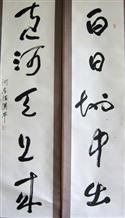 白日地中出
黄河天上来